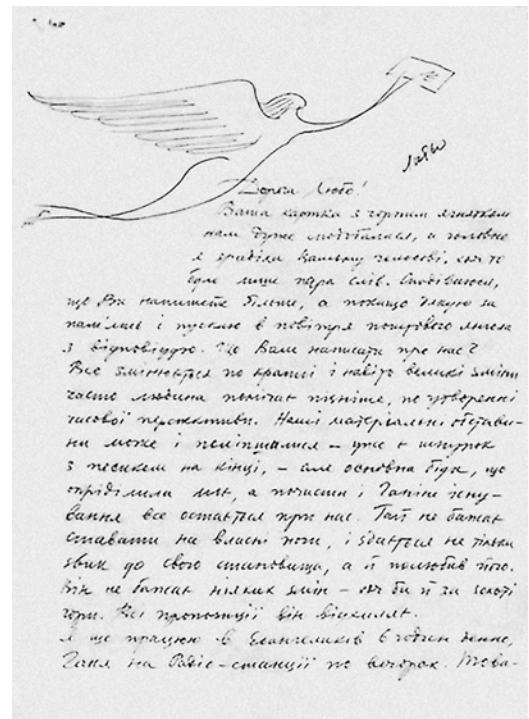 Дорога Любо!
Ваша картка з чорним ягнятком
нам дуже подобалася, а головне
я зраділа Вашому голосові, хоч то
були лише пара слів. Сподіваюся,
що Ви напишете більше, а покищо дякую за
пам'ять і пускаю в повітря поштового
з відповіддю. Що Вам написати про нас?
Все змінюється по краплі і навіть великі зміни
часто людина помічає пізніше, по утворенні
часової перспективи. Наші матеріяльні обстави-
ни може і поліпшилися – уже є шнурок
з песиком на кінці, – але основна біда, що
опріділила моє, а почасти і Ганіне існу-
вання все остається при нас. Гай не бажає
ставати на власні ноги, і здається не тільки
звик до свого становища, а й полюбив його.
Він не бажає ніяких змін – хоч би й за золоті
гори. Всі пропозиції він відхиляє.
Я ще працюю в Євангеликів 6 годин денно,
Ганя на Радіо-станції по вечорах. Това-